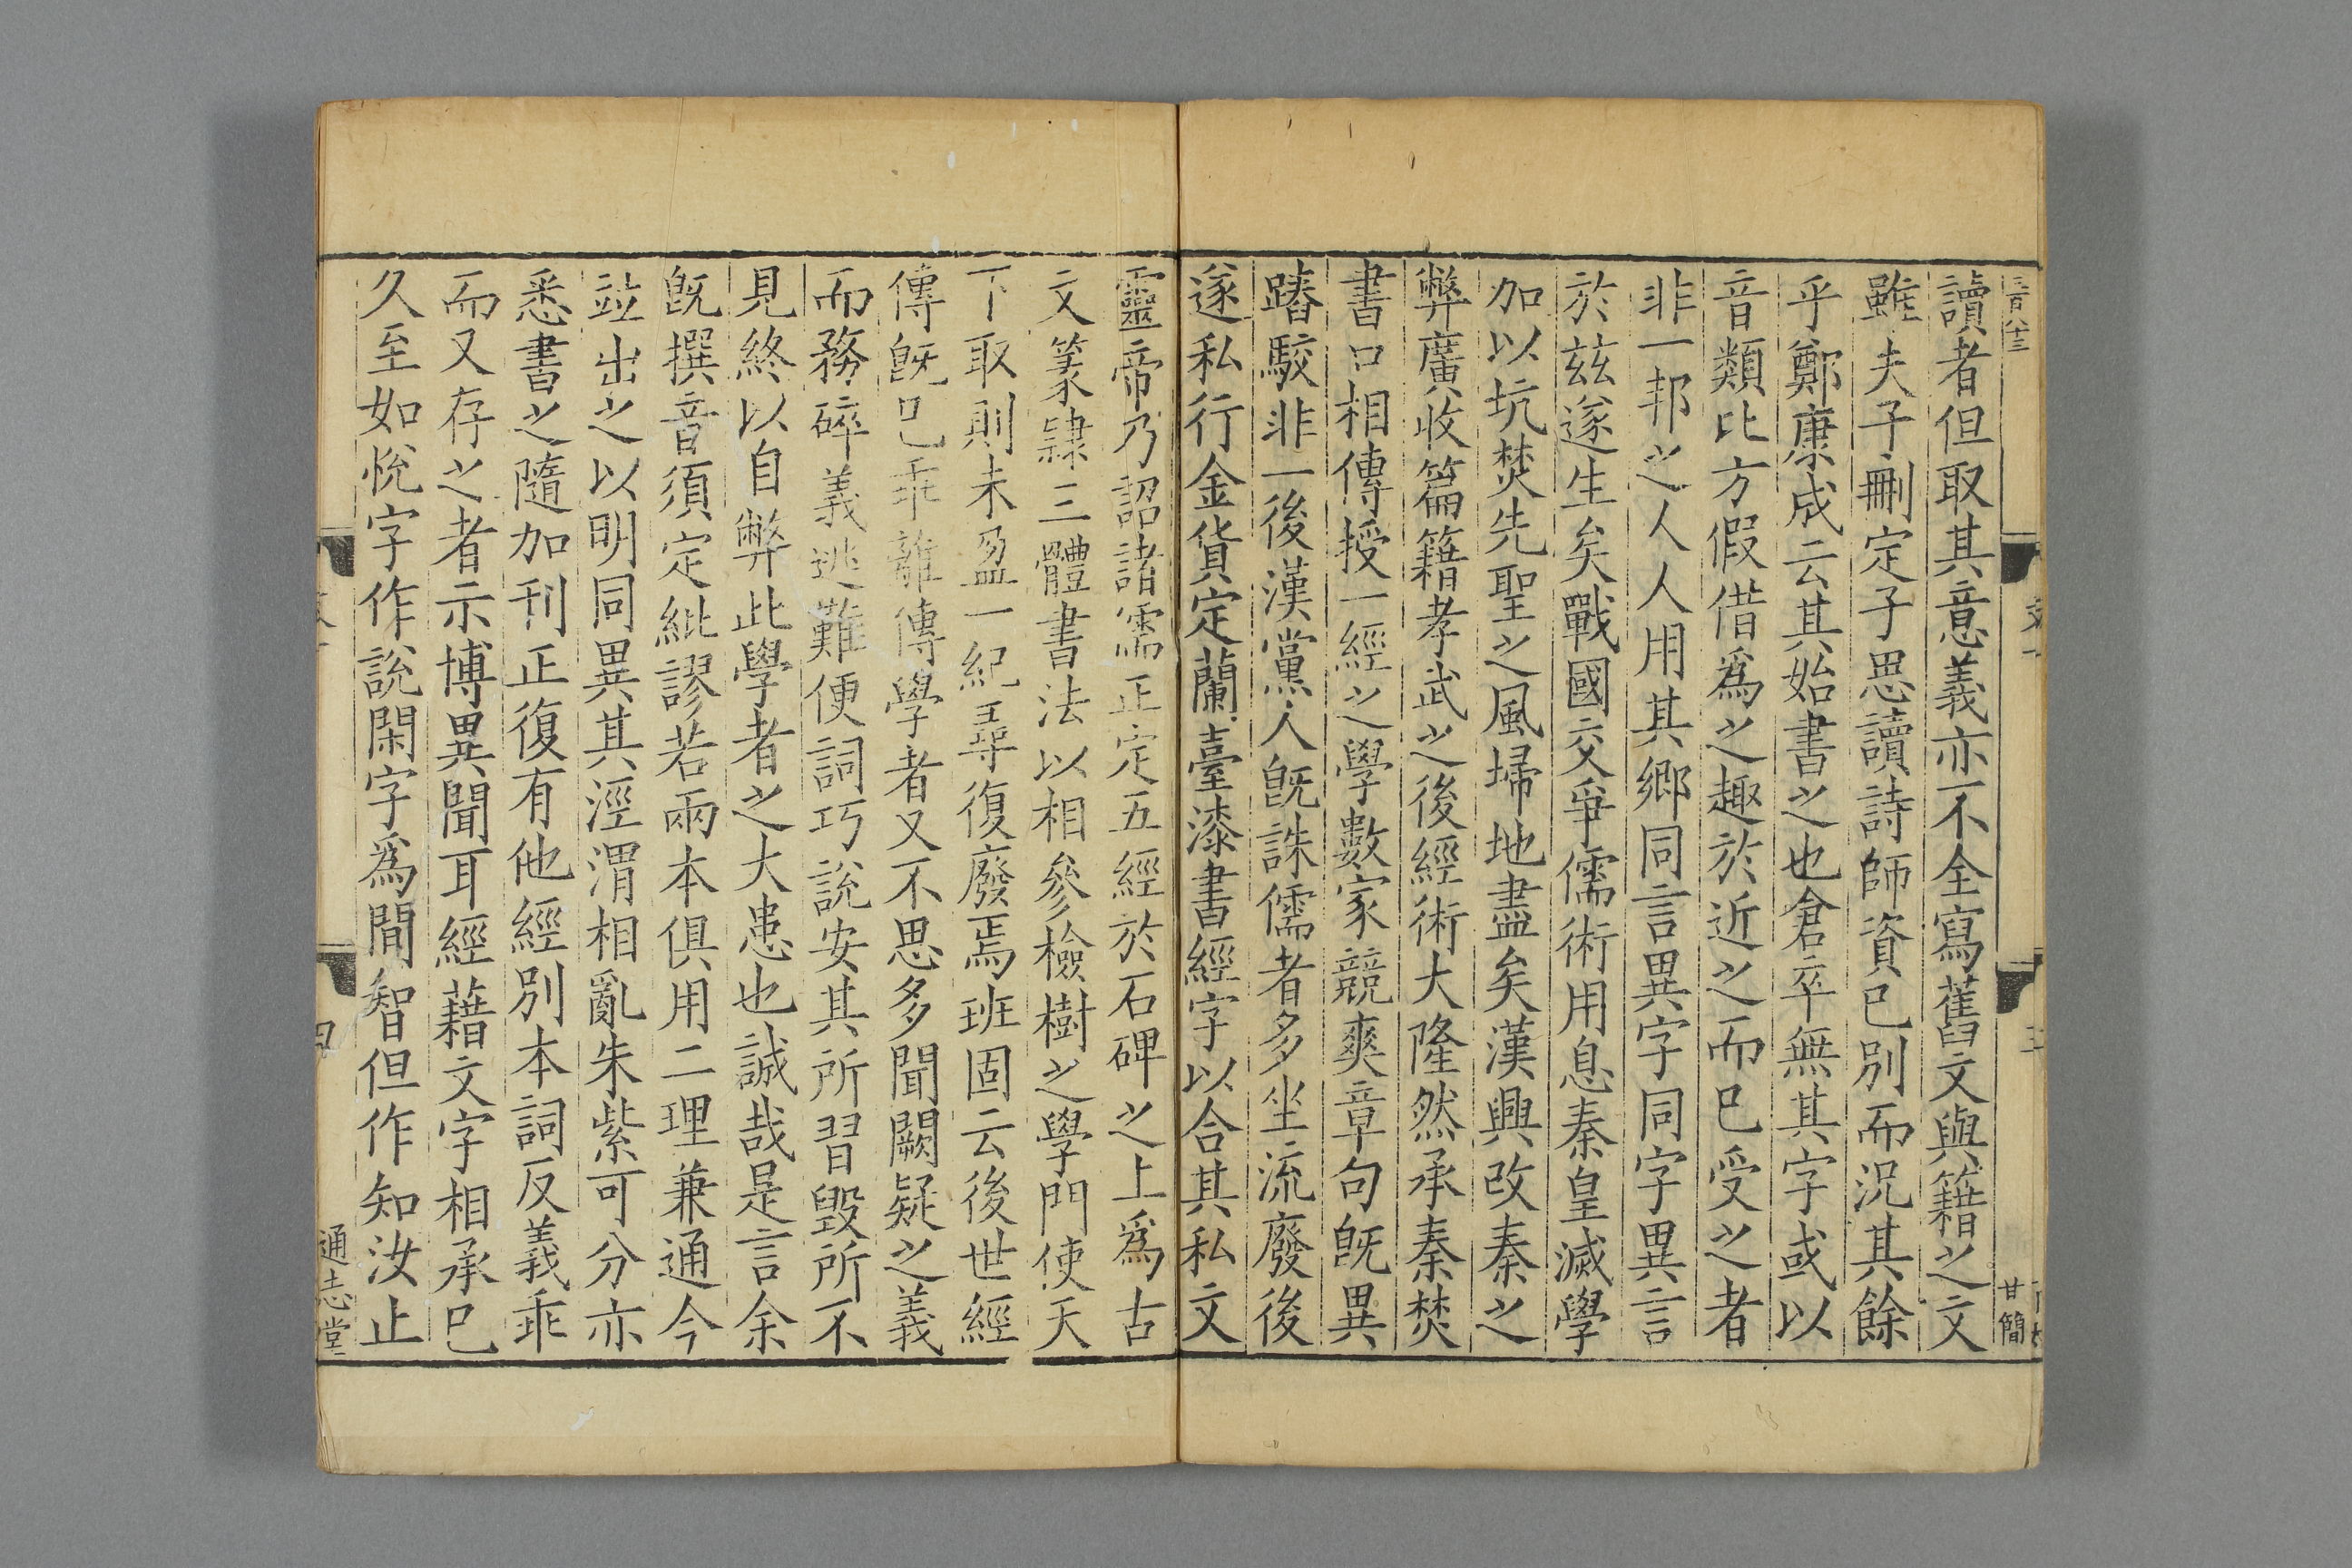 三百八十三
甘簡
讀者但取其意義亦不全寫舊文與籍之文
雖夫子刪定子思讀詩師資已別而況其餘
乎鄭康成云其始書之也倉卒無其字或以
音類比方假借爲之趣於近之而已受之者
非一邦之人人用其鄉同言異字同字異言
於兹遂生矣戰國交爭儒術用息秦皇滅學
加以坑焚先聖之風埽地盡矣漢興改秦之
弊廣收篇籍孝武之後經術大隆然承秦焚
書口相傳授一經之學數家競爽章句旣異
踳駮非一後漢黨人旣誅儒者多坐流廢後
遂私行金貨定蘭臺漆書經字以合其私文
靈帝乃詔諸儒正定五經於石碑之上爲古
文篆隸三體書法以相參檢樹之學門使天
下取則未盈一紀尋復廢焉班固云後世經
傳旣已乖離傳學者又不思多聞闕疑之義
而務碎義逃難便詞巧說安其所習毀所不
見終以自弊此學者之大患也誠哉是言余
旣撰音須定紕謬若兩本俱用二理兼通今
竝出之以明同異其涇渭相亂朱紫可分亦
悉書之隨加刊正復有他經別本詞反義乖
而又存之者示博異聞耳經藉文字相承已
久至如悅字作說閑字爲閒智但作知汝止
四
通志堂